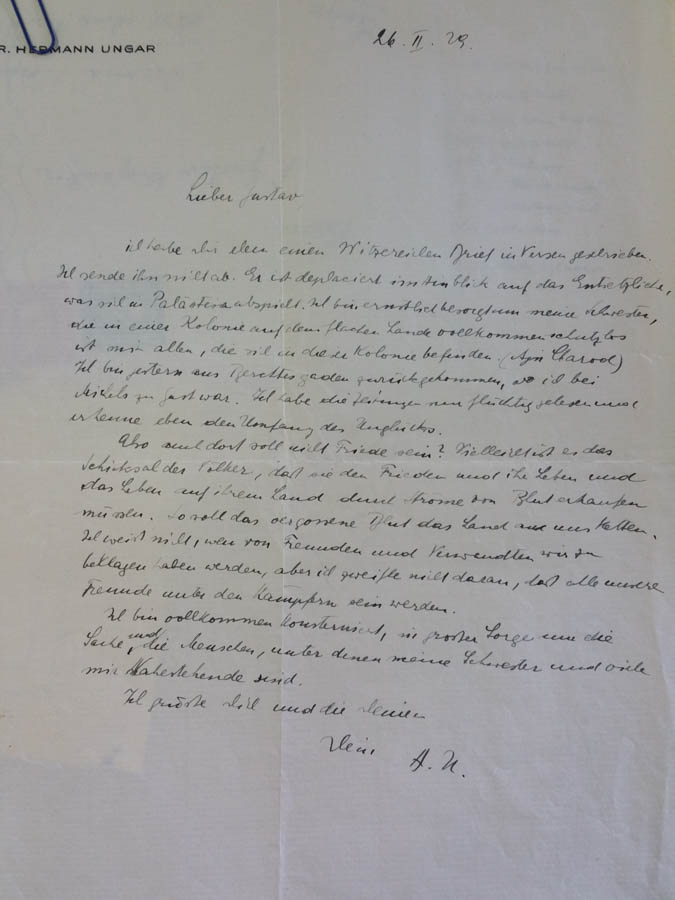 R. HERMANN UNGAR
26. II. 29.
Lieber Gustav
ich habe dir eben einen Witzereichen Brief in Versen geschrieben.
Ich sende ihn nicht ab. Er ist deplaciert im Hinblick auf das Entsetzliche,
was sich in Palästina abspielt. Ich bin ernstlich besorgt um meine Schwester,
die in einer Kolonie auf dem flachen Lande vollkommen schutzlos
ist mit allen, die sich in dieser Kolonie befinden. (Ajn Charod)
Ich bin gestern aus Berchtesgaden zurückgekommen, wo ich bei
Michels zu Gast war. Ich habe die Zeitungen nur flüchtig gelesen und
erkenne eben den Umfang des Unglücks.
Also auch dort soll nicht Friede sein? Vielleicht ist es das
Schicksal der Völker, daß sie den Frieden und ihr Leben und
das Leben auf ihrem Land durch Ströme von Blut erkaufen
müssen. So soll das vergossene Blut das Land an uns ketten.
Ich weiss nicht, wen von Freunden und Verwandten wir zu
beklagen haben werden, aber ich zweifle nicht daran, daß alle unsere
Freunde unter den Kämpfern sein werden.
Ich bin vollkommen konsterniert, in großer Sorge um die
Sache, und die Menschen, unter denen meine Schwester und viele
mir Nahestehende sind.
Ich grüße dich und die Deinen
Dein
H. U.